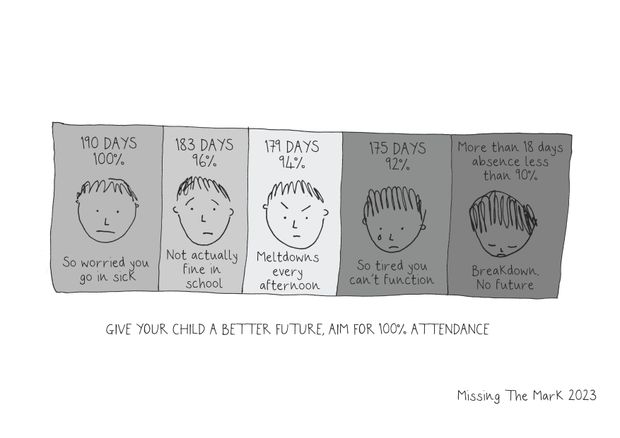 190 DAYS
100%
So worried you
go in sick
183 DAYS
96%
Not actually
fine in
school
179 DAYS
94%
Meltdowns
every
afternoon
175 DAYS
92%
So tired you
can't function
More than 18 days
absence less
than 90%
Breakdown.
No future
GIVE YOUR CHILD A BETTER FUTURE, AIM FOR 100% ATTENDANCE
Missing The Mark 2023